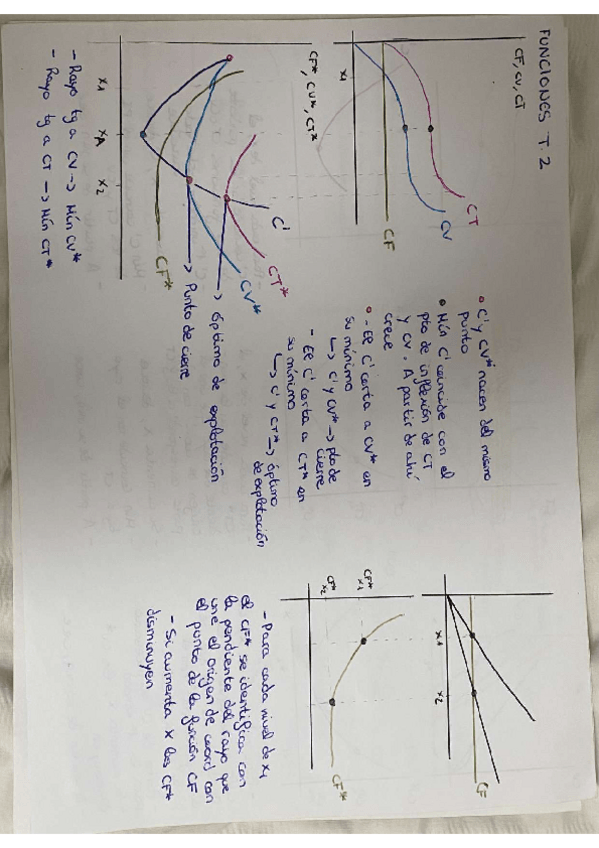 FUNCIONES T. 2
CF, CV, CT
CT
CV
CF
x1
CF*, CV*, CT*
C'
CT*
CV*
CF*
x1
xA
x2
Óptimo de explotación
Punto de cierre
- Rayo tg a CV → Mín CV*
- Rayo tg a CT → Mín CT*
C' y CV* nacen del mismo
punto
Mín C' coincide con el
pto de inflexión de CT
y CV. A partir de ahí
crece
- El C' corta a CV* en
su mínimo
↳ C' y CV* → pto de
cierre
- El C' corta a CT* en
su mínimo
↳ C' y CT* → óptimo
de explotación
x1
x2
CF
CF*
x1
CF*
x2
CF*
- Para cada nivel de x1
el CF* se identifica con
la pendiente del rayo que
une el origen de coord con
el punto de la función CF
- Si aumenta x los CF*
disminuyen